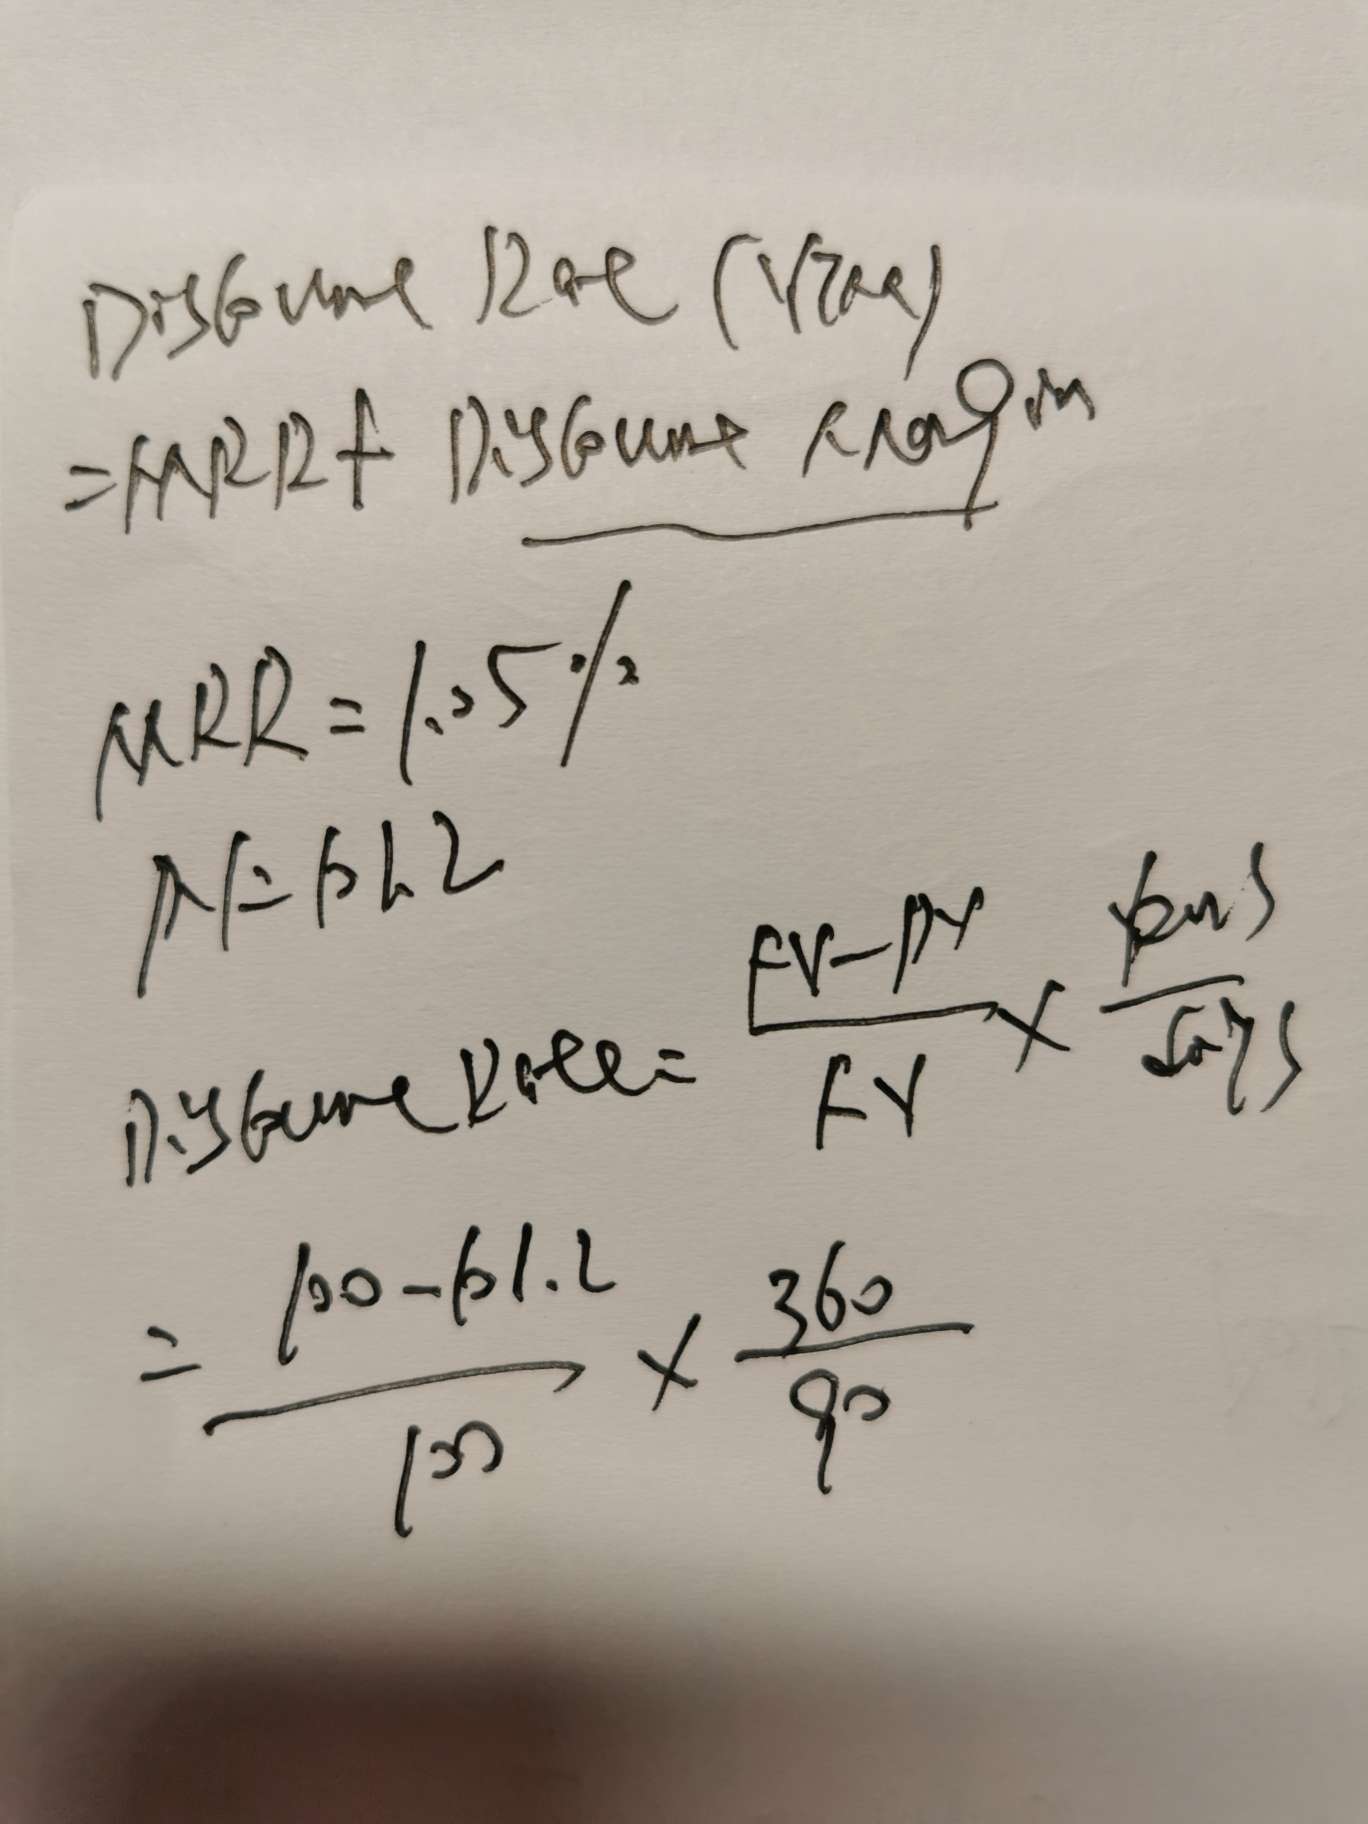 Discount Rate (Yield)
= MRR + Discount Margin
MRR = 1.05%
N = 61.2
Discount Rate = FV - PV / FV × Years / Days
= 100 - 61.2 / 100 × 360 / 90